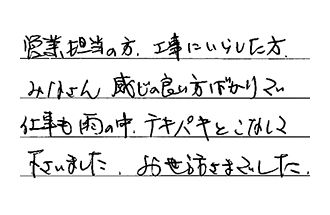 営業担当の方、工事にいらした方、
みなさん 感じの良い方ばかりでい
仕事も雨の中、テキパキとこなして
下さいました。お世話さまでした。